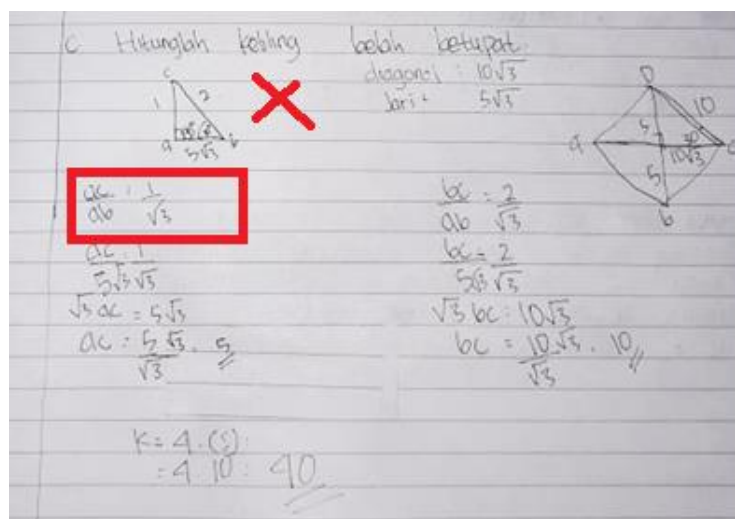 c Hitunglah keliling belah ketupat.
diagonal : 10√3
Jari² 5√3
c
1 2
a 5√3 b
D
10
a 5 30 c
10√3
5
b
ac/ab = 1/√3
ac/5√3 = 1/√3
√3 ac = 5√3
ac = 5√3/√3 = 5
bc/ab = 2/√3
bc/5√3 = 2/√3
√3 bc = 10√3
bc = 10√3/√3 = 10
K = 4 . (s)
= 4 . 10 = 40